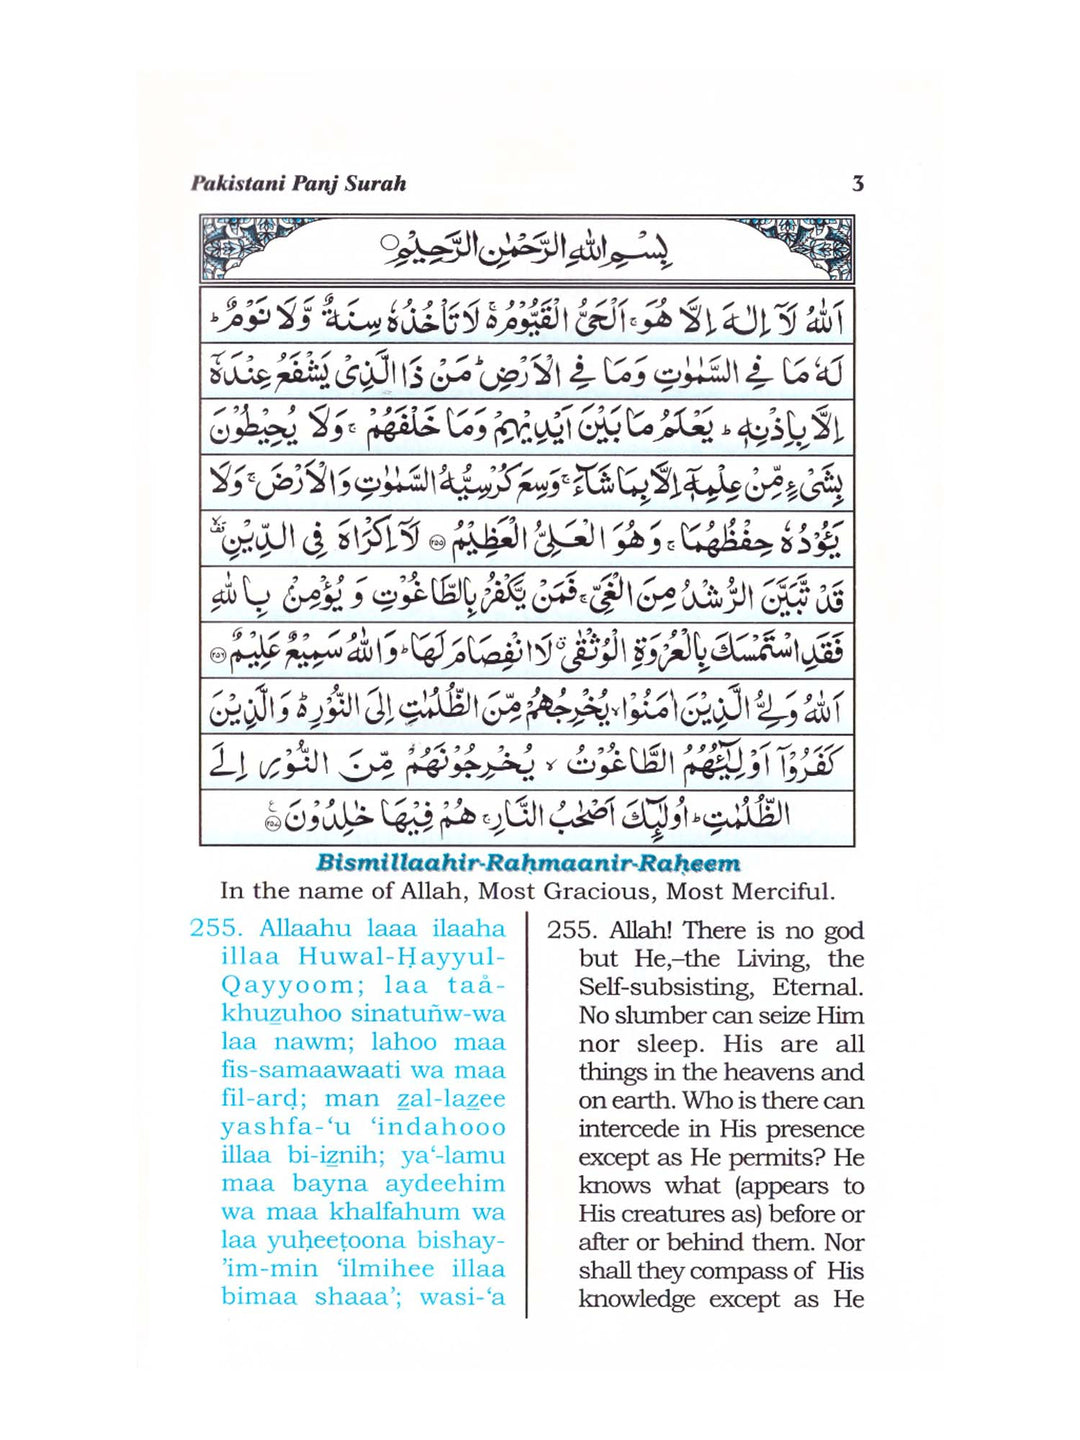 Pakistani Panj Surah 3
بِسْمِ اللهِ الرَّحْمٰنِ الرَّحِيْمِ○
اَللهُ لَآ اِلٰهَ اِلَّا هُوَ ۚ اَلْحَيُّ الْقَيُّوْمُ ۚ۬ لَا تَاْخُذُهٗ سِنَةٌ وَّلَا نَوْمٌ ؕ
لَهٗ مَا فِي السَّمٰوٰتِ وَمَا فِي الْاَرْضِ ؕ مَنْ ذَا الَّذِيْ يَشْفَعُ عِنْدَهٗٓ
اِلَّا بِاِذْنِهٖ ؕ يَعْلَمُ مَا بَيْنَ اَيْدِيْهِمْ وَمَا خَلْفَهُمْ ۚ وَلَا يُحِيْطُوْنَ
بِشَيْءٍ مِّنْ عِلْمِهٖٓ اِلَّا بِمَا شَآءَ ۚ وَسِعَ كُرْسِيُّهُ السَّمٰوٰتِ وَالْاَرْضَ ۚ وَلَا
يَـُٔوْدُهٗ حِفْظُهُمَا ۚ وَهُوَ الْعَلِيُّ الْعَظِيْمُ ۝۲۵۵ لَآ اِكْرَاهَ فِي الدِّيْنِ ۙ قف
قَدْ تَّبَيَّنَ الرُّشْدُ مِنَ الْغَيِّ ۚ فَمَنْ يَّكْفُرْ بِالطَّاغُوْتِ وَيُؤْمِنْۢ بِاللهِ
فَقَدِ اسْتَمْسَكَ بِالْعُرْوَةِ الْوُثْقٰى ۗ لَا انْفِصَامَ لَهَا ؕ وَاللهُ سَمِيْعٌ عَلِيْمٌ ۝۲۵۶
اَللهُ وَلِيُّ الَّذِيْنَ اٰمَنُوْا ۙ يُخْرِجُهُمْ مِّنَ الظُّلُمٰتِ اِلَى النُّوْرِ ۬ؕ وَالَّذِيْنَ
كَفَرُوْٓا اَوْلِيٰٓـُٔهُمُ الطَّاغُوْتُ ۙ يُخْرِجُوْنَهُمْ مِّنَ النُّوْرِ اِلَى
الظُّلُمٰتِ ؕ اُولٰٓئِكَ اَصْحٰبُ النَّارِ ۚ هُمْ فِيْهَا خٰلِدُوْنَ ۝۲۵۷ ع
Bismillaahir-Raḥmaanir-Raḥeem
In the name of Allah, Most Gracious, Most Merciful.
255. Allaahu laaa ilaaha
illaa Huwal-Ḥayyul-
Qayyoom; laa taå-
khuz̲uhoo sinatuñw-wa
laa nawm; lahoo maa
fis-samaawaati wa maa
fil-arḍ; man z̲al-laz̲ee
yashfa-‘u ‘indahooo
illaa bi-iz̲nih; ya‘-lamu
maa bayna aydeehim
wa maa khalfahum wa
laa yuḥeeṭoona bishay-
’im-min ‘ilmihee illaa
bimaa shaaa’; wasi-‘a
255. Allah! There is no god
but He,–the Living, the
Self-subsisting, Eternal.
No slumber can seize Him
nor sleep. His are all
things in the heavens and
on earth. Who is there can
intercede in His presence
except as He permits? He
knows what (appears to
His creatures as) before or
after or behind them. Nor
shall they compass of His
knowledge except as He